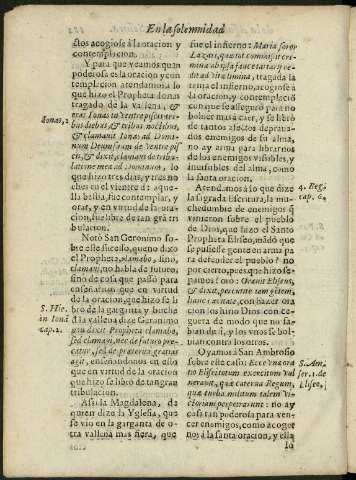 En la solemnidad
ctos acogiose á la otacion y
contemplacion.
Y para que veamos quan
poderosa es la oracion y con
templacion atendamos a lo
que hizo el Propheta Jonas
tragado de la vallena, &
erat Ionas in ventre piscis tri-
bus diebus, & tribus noctibus,
& clamauit Ionas ad Domi-
num Deum suum de ventre pis
cis, & dixit, clamaui de tribula-
tione mea ad Dominum, lo
que hizo tres dias, y tras no
ches en el vientre de aque-
lla bestia, fue contemplar, y
orar, y en virtud de la ora-
cion, fue libre de tan gran tri
bulacion.
Notò San Geronimo so-
bre este suceso, que no dixo
el Propheta, clamabo, sino,
clamaui, no habla de futuro,
sino de cosa que passó para
enseñarnos que en virtud
de la oracion, que hizo se li
bro de la garganta y buche
d la vallena dize Geronimo
non dixit Propheta clamabo,
sed clamaui, nec de futuro pre-
catur, sed de præterito gratias
agit, enseñandonos en ello
que en virtud de la oracion
que hizo se libró de tan gran
tribulacion.
Assi la Magdalena, da
quien dizo la Yglesia, que
se vio en la garganta de o-
tra vallena mas fiera, que
Ionas, 2
S. Hie.
in Ionā
cap. 2.
fue el infierno: Maria soror
Lazari, quæ tot commisit cri-
mina ab ipsa fauce tartari re-
dit ad vitæ limina, tragada la
tenia el infierno, acogiose a
la oracion, y contemplació
con que se asseguró para no
bolver mas à caer, y se libró
de tantos afectos deprauados
enemigos de su alma,
no ay arma para librarnos
de los enemigos visibles, y
inuisibles del alma, como
la santa oracion.
Atendamos á lo que dize
la sagrada Escritura, la mu-
chedumbre de enemigos q̃
vinieron sobre el pueblo
de Dios, que fazo el Santo
Propheta Eliseo, mãdó que
se pusiesse gente en arma pa
ra defender el pueblo? no
por cierto, pues que hizo se-
pamos? oró: Orauit Eliseus,
& dixit, percute gentem istam,
hanc cæcitate, con hazer ora
cion los hirio Dios con ce-
guera de modo que no sa-
bian de qui, y los vnos se bol
uian contra los otros.
Oyamos á San Ambrosio
sobre este caso: Ecce vna ora
tio Elisei totum exercitum vul
nerauit, quæ caterua Regum,
quæ turba militum talem vi-
ctoriam perpetrarunt: no ay
cosa tan poderosa para ven-
cer enemigos, como acoger
nos á la santa oracion, y ella
lo
4. Reg.
cap. 6.
S. Am.
ser. 1. de
Eliseo,